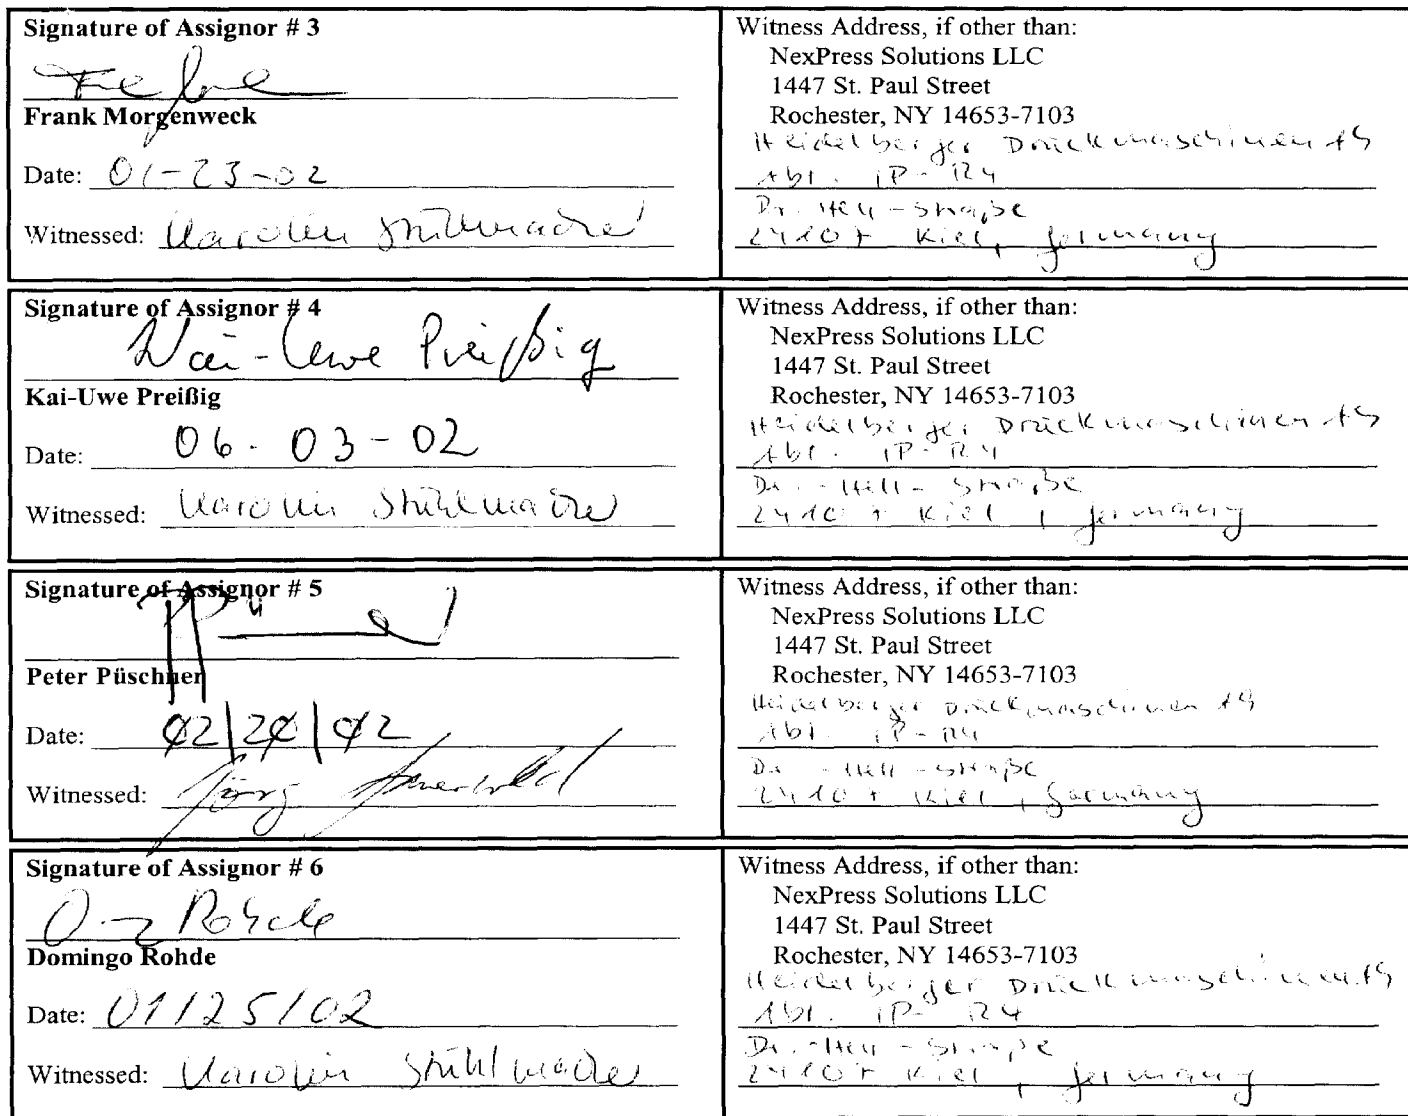 Signature of Assignor # 3
Frank Morgenweck
Date: 01-23-02
Witnessed: Karolin Stühlmacher
Witness Address, if other than:
NexPress Solutions LLC
1447 St. Paul Street
Rochester, NY 14653-7103
Heidelberger Druckmaschinen AG
Abt. iP-R4
Dr.-Hell-Straße
24107 Kiel, Germany
Signature of Assignor # 4
Kai-Uwe Preißig
Kai-Uwe Preißig
Date: 06-03-02
Witnessed: Karolin Stühlmacher
Witness Address, if other than:
NexPress Solutions LLC
1447 St. Paul Street
Rochester, NY 14653-7103
Heidelberger Druckmaschinen AG
Abt. iP-R4
Dr.-Hell-Straße
24107 Kiel, Germany
Signature of Assignor # 5
Peter Püschner
Date: 02|20|02
Witnessed: Jörg
Witness Address, if other than:
NexPress Solutions LLC
1447 St. Paul Street
Rochester, NY 14653-7103
Heidelberger Druckmaschinen AG
Abt. iP-R4
Dr.-Hell-Straße
24107 Kiel, Germany
Signature of Assignor # 6
Rohde
Domingo Rohde
Date: 01/25/02
Witnessed: Karolin Stühlmacher
Witness Address, if other than:
NexPress Solutions LLC
1447 St. Paul Street
Rochester, NY 14653-7103
Heidelberger Druckmaschinen AG
Abt. iP-R4
Dr.-Hell-Straße
24107 Kiel, Germany